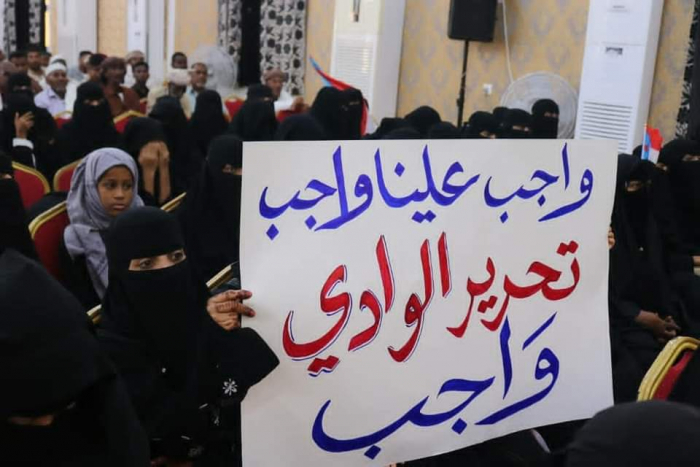 واجب علينا واجب
تحرير الوادي
واجب